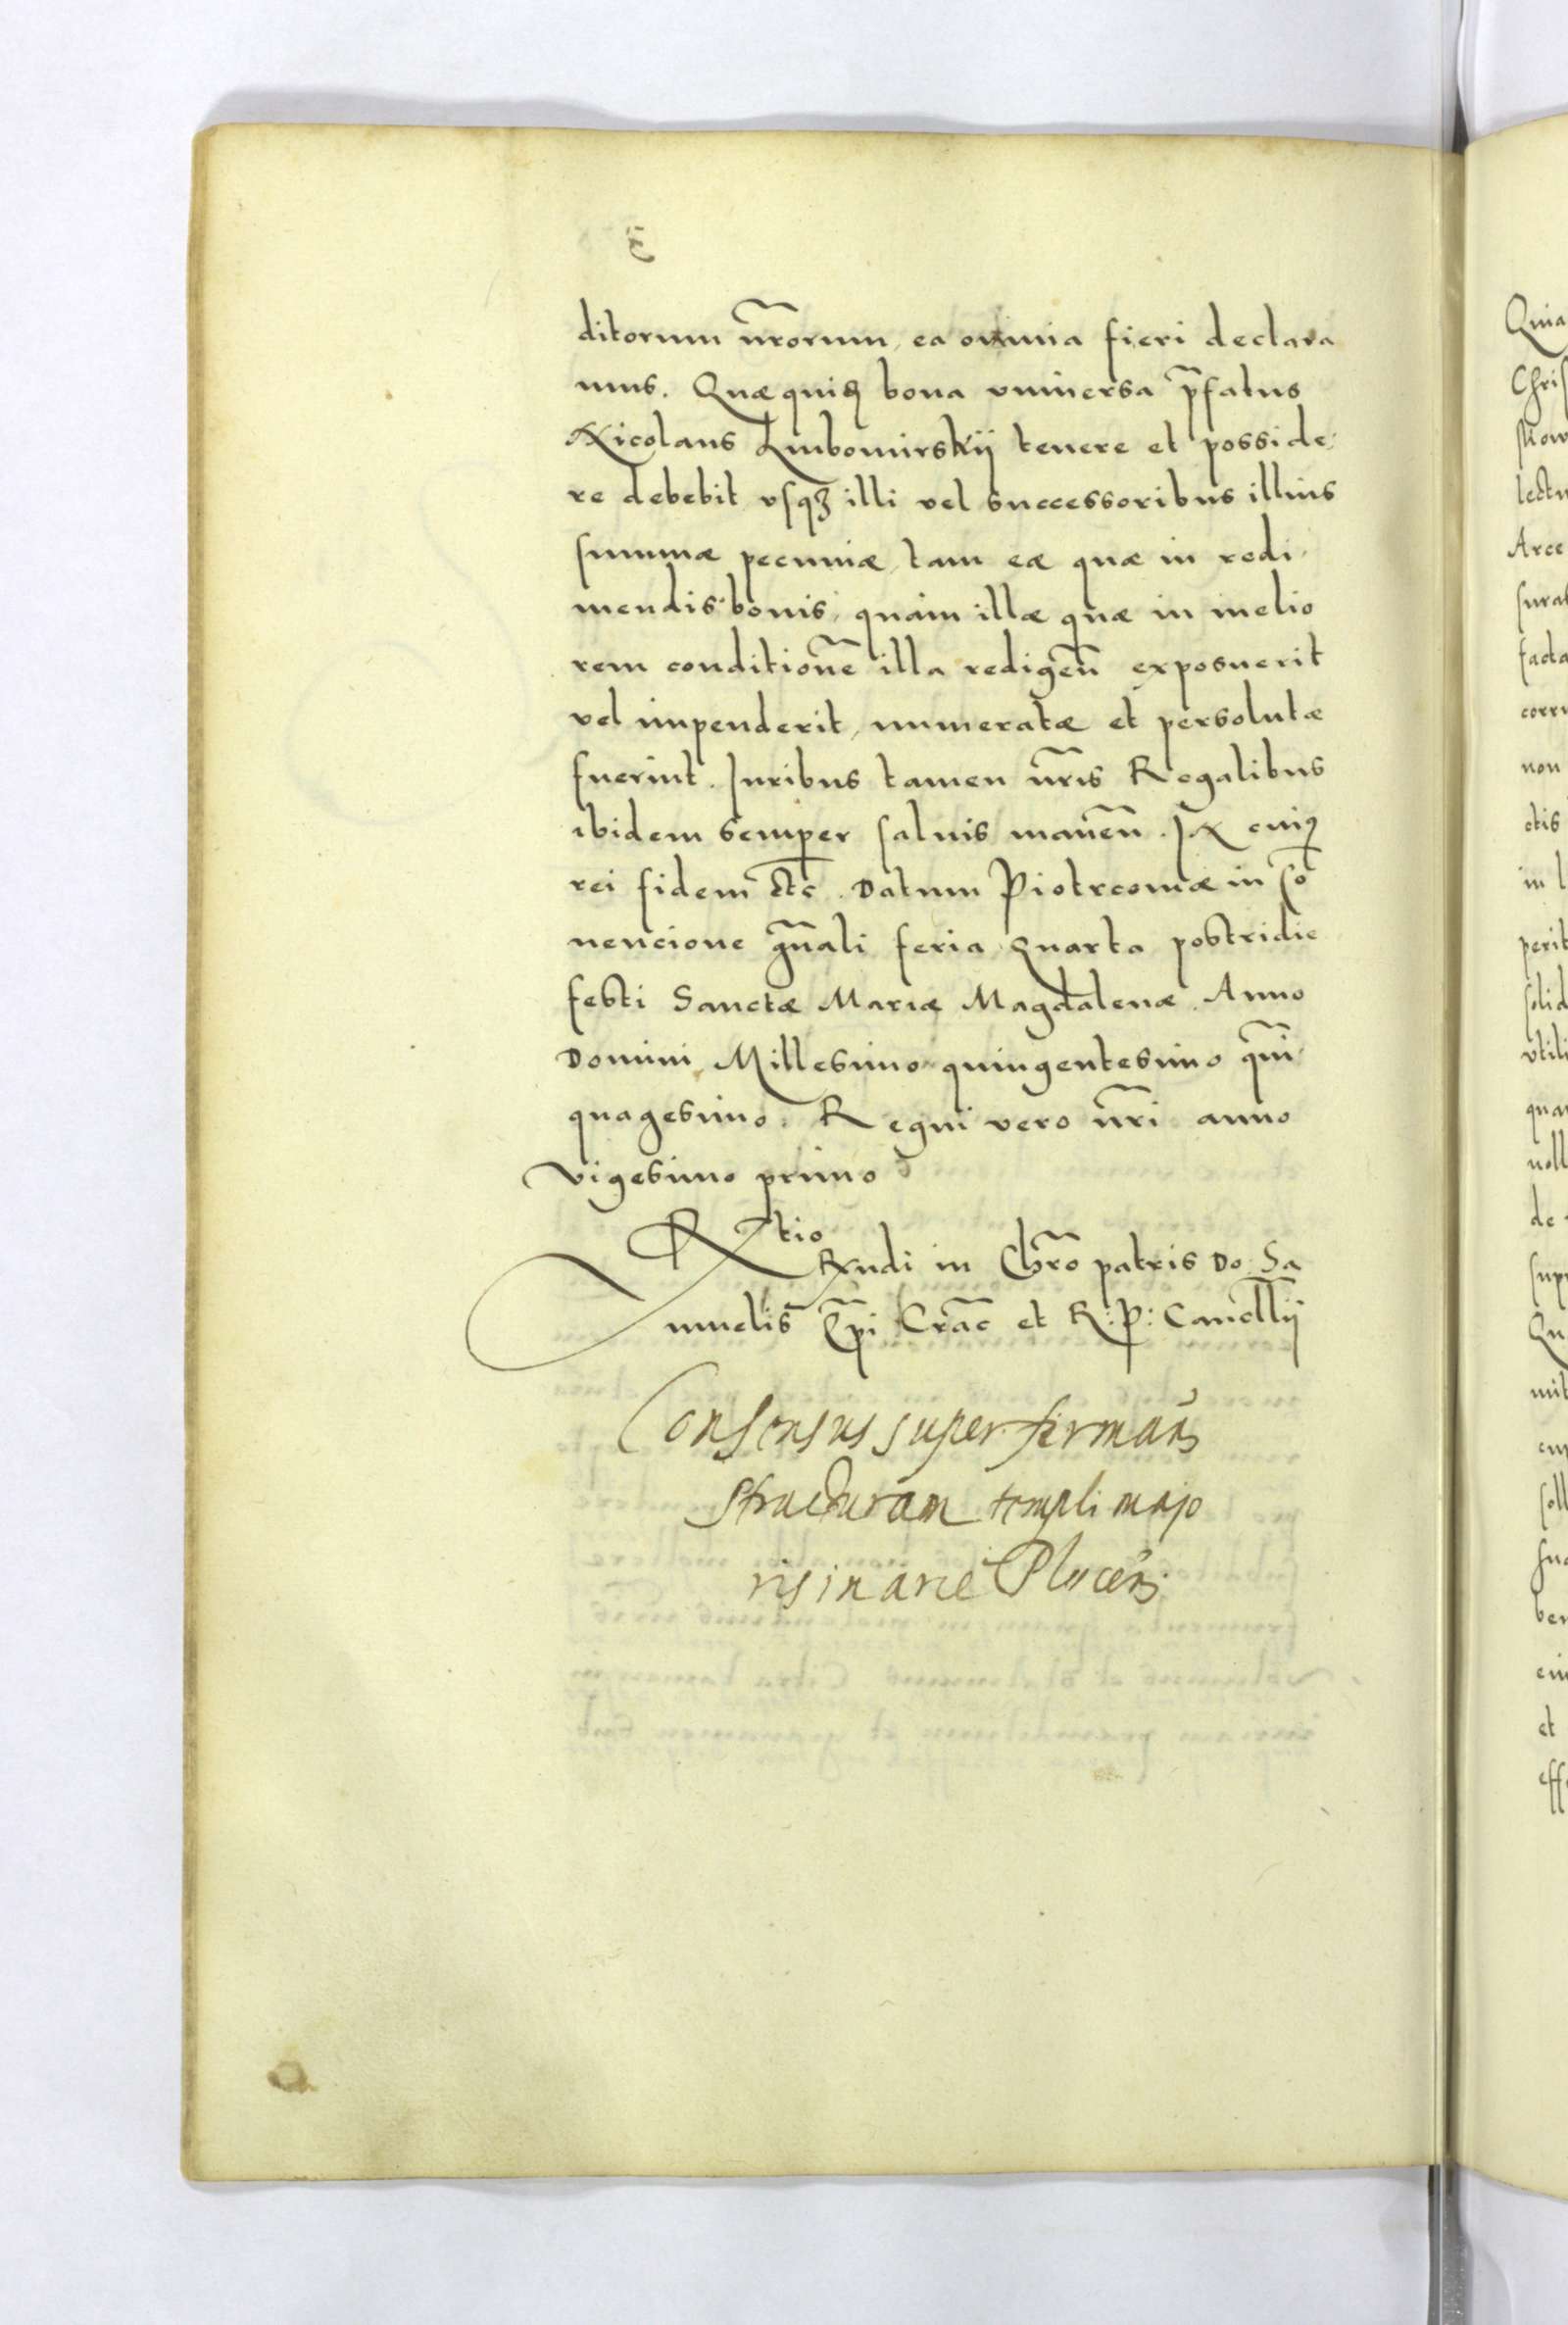 ditorum nr̃orum, ea omnia fieri declara
mus. Quæ quidẽ bona vniuersa p̃fatus
Nicolaus Lubomirskij tenere et posside,
re debebit vsq3 illi vel successoribus illius
summæ pecuniæ, tam eæ quæ in redi,
mendis bonis, quàm illæ quæ in melio
rem conditionẽ illa redigeñ exposuerit
vel impenderit, numeratæ et persolutæ
fuerint. Iuribus tamen nr̃is Regalibus
ibidem semper saluis maneñ. In cuiꝰ
rei fidem etc̃. Datum Piotrcouiæ in Co
uencione gñali feria Quarta postridie
festi Sanctæ Mariæ Magdalenæ. Anno
Domini Millesimo quingentesimo qui͂
quagesimo. Regni vero nr̃i anno
vigesimo primo
Rtio
Rxndi in Chr̃o patris Do. Sa
muelis Ep̃i Crac̃ et R: P: Cancellij
Consensus super firmañ
structuram templi majo
ris in arce Ploceñ.
Quia
Chris
skow
lectu
Arce
surat
facta
corru
non
ctis
in l
perit
solid
vtili
quar
noll
de
supp
Qu
mit
cup
soll
sua
ben
eiu
et
effe